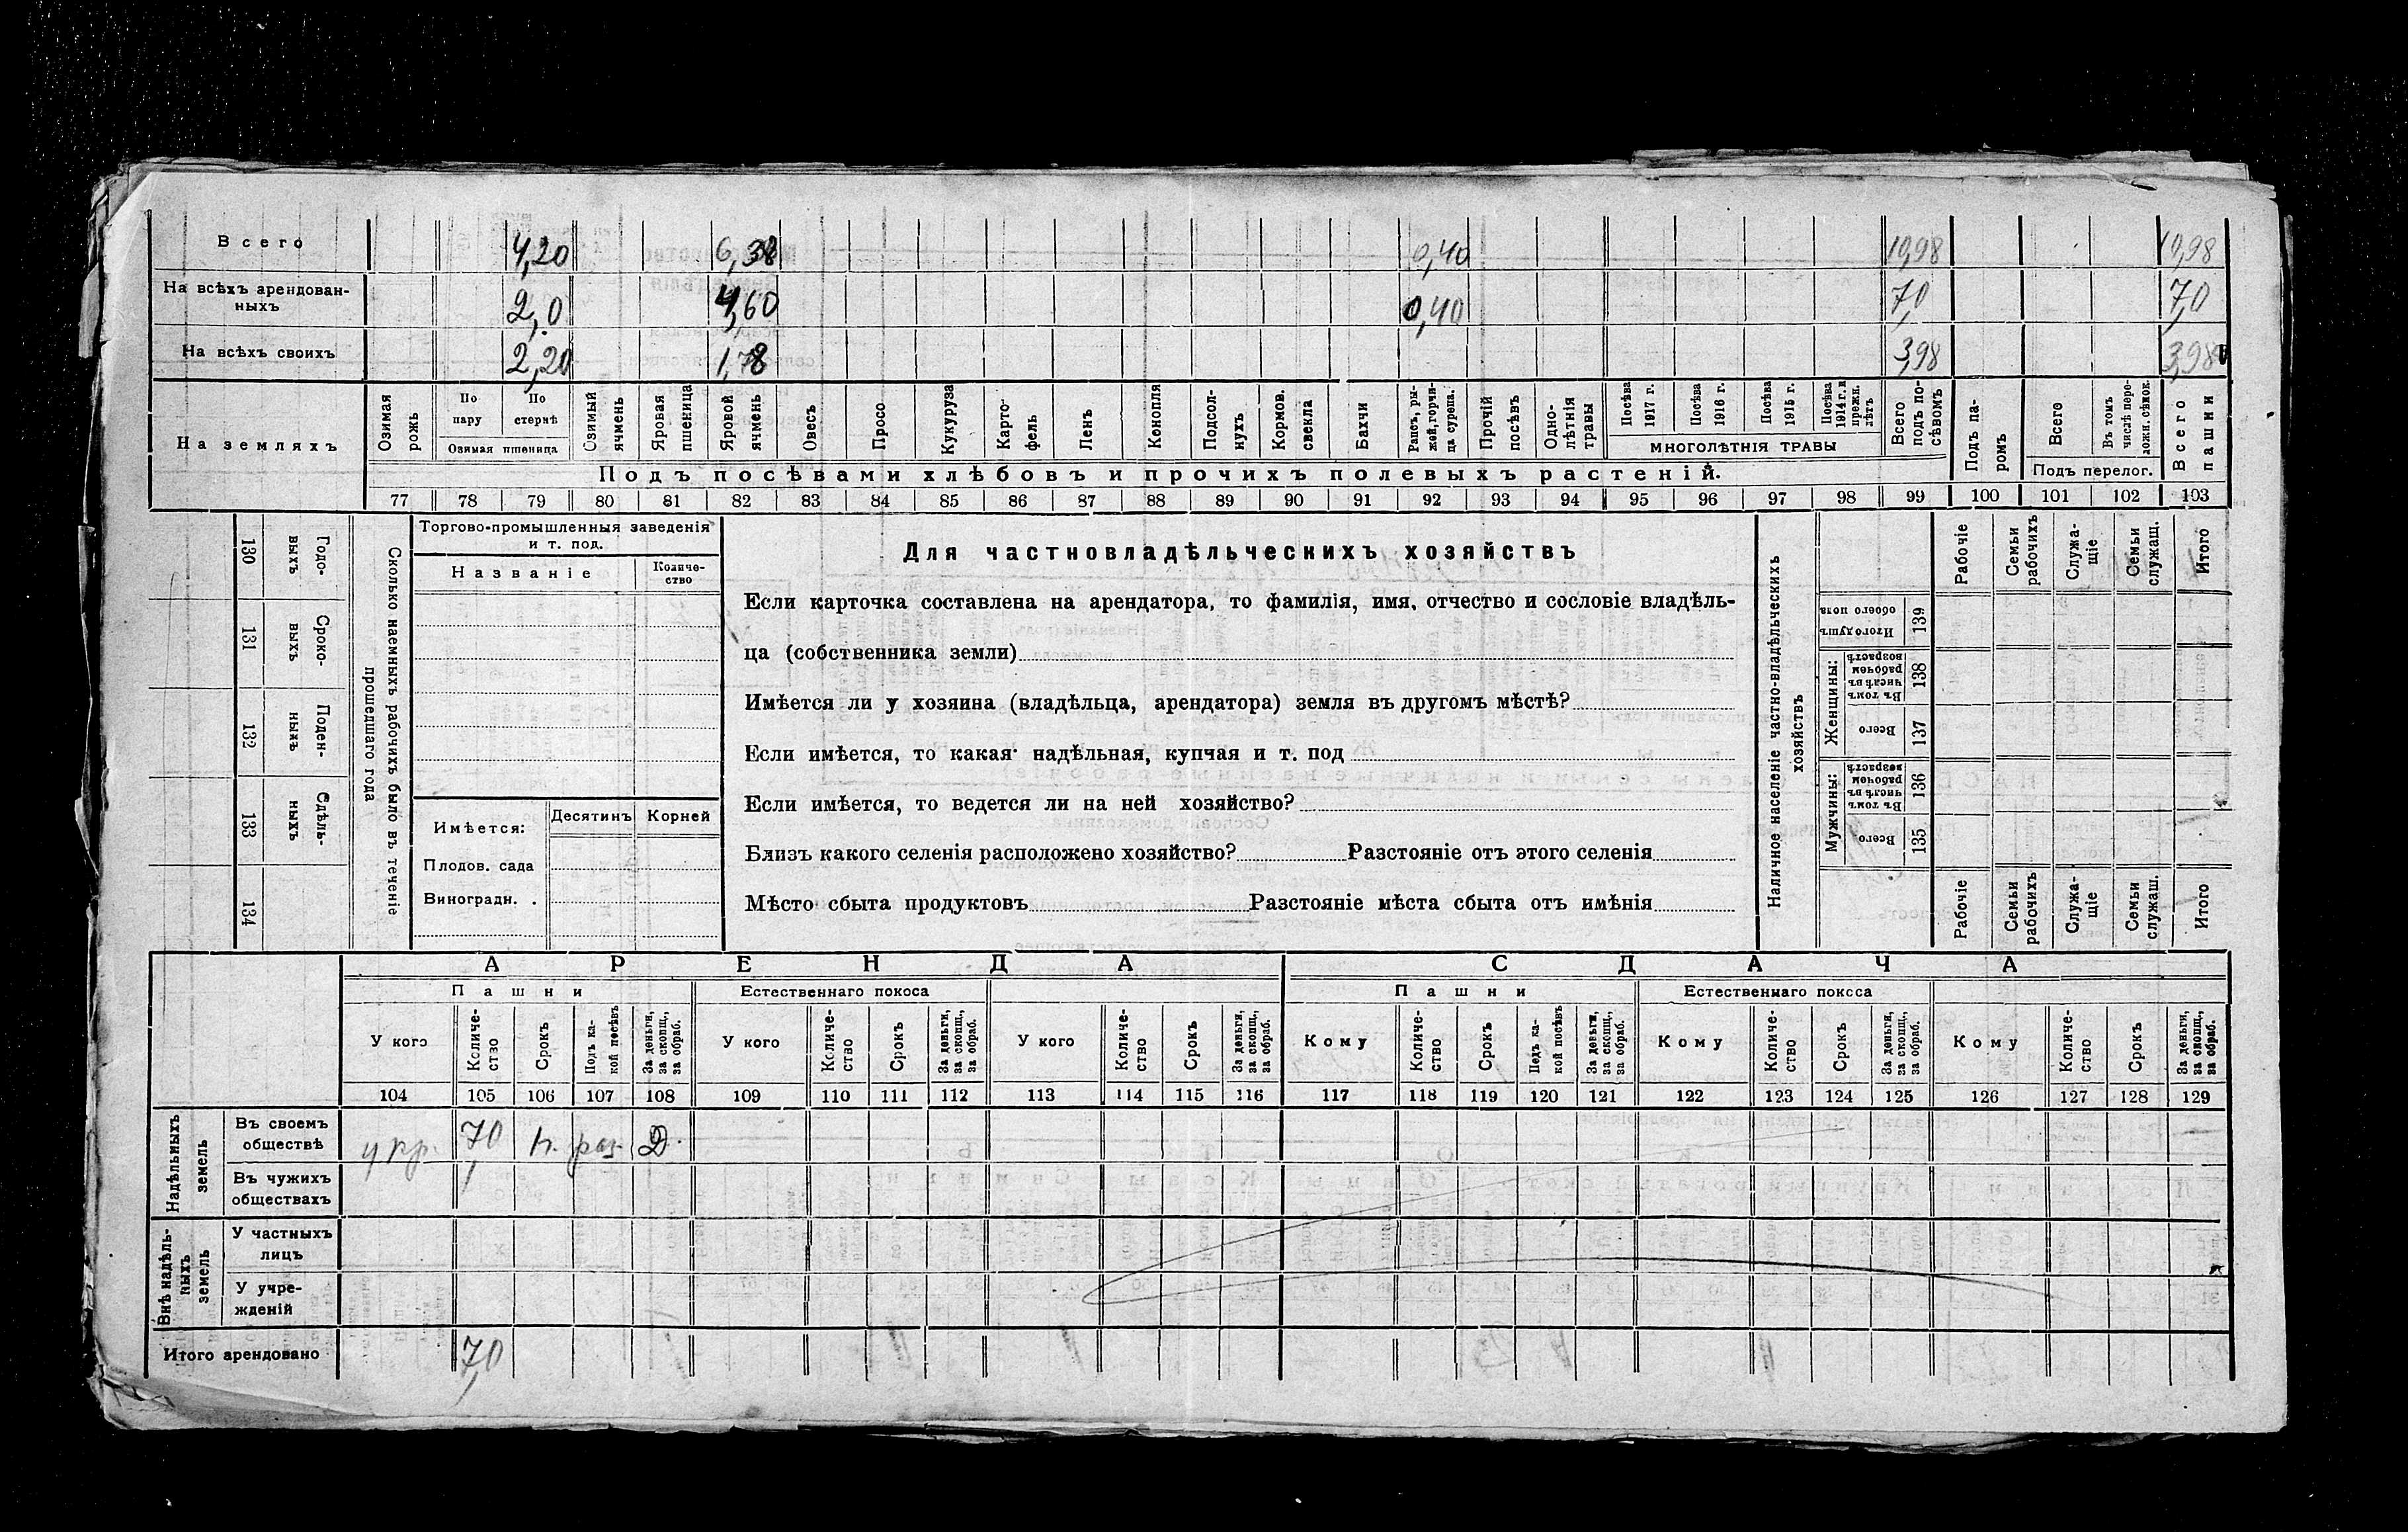 Всего 4,20 6,38 0,40 10,98 10,98
На всѣхъ арендован-
ныхъ 2,0 4,60 0,40 7,0 7,0
На всѣхъ своихъ 2,20 1,78 3,98 3,98
На земляхъ
Озимая рожь
По пару
По стернѣ
Озимая пшеница
Озимый ячмень
Яровая пшеница
Яровой ячмень
Овесъ
Просо
Кукуруза
Карто-
фель
Ленъ
Конопля
Подсол-
нухъ
Кормов.
свекла
Бахчи
Рапсъ, ры-
жей, горчи-
ца сурепа.
Прочій
посѣвъ
Одно-
лѣтнія
травы
Посѣва
1917 г.
Посѣва
1916 г.
Посѣва
1915 г.
Посѣва
1914 г. и
прежн.
лѣтъ
МНОГОЛѢТНІЯ ТРАВЫ
Всего
подъ по-
сѣвомъ
Подъ па-
ромъ
Всего
Въ томъ
числѣ пере-
ложн. сѣнок.
Подъ перелог.
Всего
пашни
Подъ посѣвами хлѣбовъ и прочихъ полевыхъ растеній.
77 78 79 80 81 82 83 84 85 86 87 88 89 90 91 92 93 94 95 96 97 98 99 100 101 102 103
130 Годо-
выхъ
131 Сроко-
выхъ
132 Поден-
ныхъ
133 Сдѣль-
ныхъ
134
Сколько наемныхъ рабочихъ было въ теченіе
прошедшаго года
Торгово-промышленныя заведенія
и т. под.
Названіе
Количе-
ство
Имѣется:
Десятинъ
Корней
Плодов. сада
Виноградн. .
Для частновладѣльческихъ хозяйствъ
Если карточка составлена на арендатора, то фамилія, имя, отчество и сословіе владѣль-
ца (собственника земли)
Имѣется ли у хозяина (владѣльца, арендатора) земля въ другомъ мѣстѣ?
Если имѣется, то какая· надѣльная, купчая и т. под
Если имѣется, то ведется ли на ней хозяйство?
Близъ какого селенія расположено хозяйство? Разстояніе отъ этого селенія
Мѣсто сбыта продуктовъ Разстояніе мѣста сбыта отъ имѣнія
Наличное населеніе частно-владѣльческихъ
хозяйствъ
Рабочіе
Семьи
рабочихъ
Служа-
щіе
Семьи
служащ.
Итого
Итого душъ
обоего пола
139
Женщины:
Въ томъ
числѣ въ
рабочемъ
возрастѣ
138
Всего
137
Мужчины:
Въ томъ
числѣ въ
рабочемъ
возрастѣ
136
Всего
135
Рабочіе
Семьи
рабочихъ
Служа-
щіе
Семьи
служащ.
Итого
АРЕНДА СДАЧА
Пашни Естественнаго покоса Пашни Естественнаго покоса
У кого
Количе-
ство
Срокъ
Подъ ка-
кой посѣвъ
За деньги,
за скопщ.,
за обраб.
У кого
Количе-
ство
Срокъ
За деньги,
за скопщ.,
за обраб.
У кого
Количе-
ство
Срокъ
За деньги,
за скопщ.,
за обраб.
Кому
Количе-
ство
Срокъ
Подъ ка-
кой посѣвъ
За деньги,
за скопщ.,
за обраб.
Кому
Количе-
ство
Срокъ
За деньги,
за скопщ.,
за обраб.
Кому
Количе-
ство
Срокъ
За деньги,
за скопщ.,
за обраб.
104 105 106 107 108 109 110 111 112 113 114 115 116 117 118 119 120 121 122 123 124 125 126 127 128 129
Надѣльныхъ
земель
Въ своемъ
обществѣ 7,0 Д.
Въ чужихъ
обществахъ
Внѣ надѣль-
ныхъ
земель
У частныхъ
лицъ
У учре-
жденій
Итого арендовано 7,0